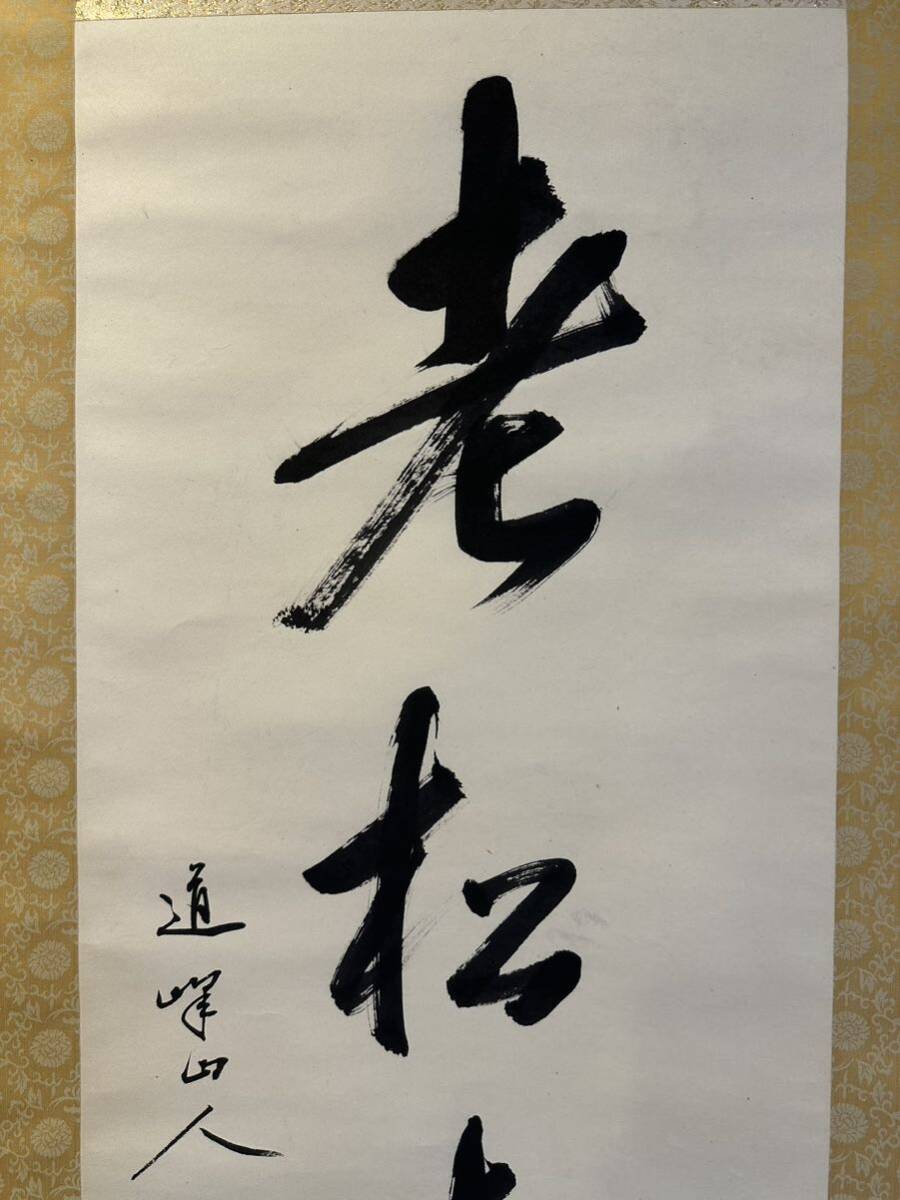 老松
道峰山人